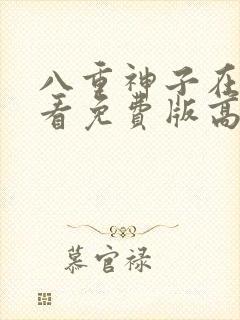 八重神子在
看免费版高
慕官禄